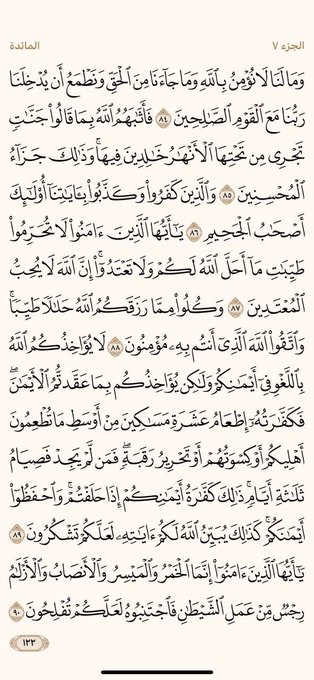 الجزء ٧ المائدة
وَمَا لَنَا لَا نُؤْمِنُ بِٱللَّهِ وَمَا جَآءَنَا مِنَ ٱلْحَقِّ وَنَطْمَعُ أَن يُدْخِلَنَا
رَبُّنَا مَعَ ٱلْقَوْمِ ٱلصَّـٰلِحِينَ ٨٤ فَأَثَـٰبَهُمُ ٱللَّهُ بِمَا قَالُوا۟ جَنَّـٰتٍ
تَجْرِى مِن تَحْتِهَا ٱلْأَنْهَـٰرُ خَـٰلِدِينَ فِيهَا ۚ وَذَٰلِكَ جَزَآءُ
ٱلْمُحْسِنِينَ ٨٥ وَٱلَّذِينَ كَفَرُوا۟ وَكَذَّبُوا۟ بِـَٔايَـٰتِنَآ أُو۟لَـٰٓئِكَ
أَصْحَـٰبُ ٱلْجَحِيمِ ٨٦ يَـٰٓأَيُّهَا ٱلَّذِينَ ءَامَنُوا۟ لَا تُحَرِّمُوا۟
طَيِّبَـٰتِ مَآ أَحَلَّ ٱللَّهُ لَكُمْ وَلَا تَعْتَدُوٓا۟ ۚ إِنَّ ٱللَّهَ لَا يُحِبُّ
ٱلْمُعْتَدِينَ ٨٧ وَكُلُوا۟ مِمَّا رَزَقَكُمُ ٱللَّهُ حَلَـٰلًا طَيِّبًا ۚ
وَٱتَّقُوا۟ ٱللَّهَ ٱلَّذِىٓ أَنتُم بِهِۦ مُؤْمِنُونَ ٨٨ لَا يُؤَاخِذُكُمُ ٱللَّهُ
بِٱللَّغْوِ فِىٓ أَيْمَـٰنِكُمْ وَلَـٰكِن يُؤَاخِذُكُم بِمَا عَقَّدتُّمُ ٱلْأَيْمَـٰنَ ۖ
فَكَفَّـٰرَتُهُۥٓ إِطْعَامُ عَشَرَةِ مَسَـٰكِينَ مِنْ أَوْسَطِ مَا تُطْعِمُونَ
أَهْلِيكُمْ أَوْ كِسْوَتُهُمْ أَوْ تَحْرِيرُ رَقَبَةٍ ۖ فَمَن لَّمْ يَجِدْ فَصِيَامُ
ثَلَـٰثَةِ أَيَّامٍ ۚ ذَٰلِكَ كَفَّـٰرَةُ أَيْمَـٰنِكُمْ إِذَا حَلَفْتُمْ ۚ وَٱحْفَظُوٓا۟
أَيْمَـٰنَكُمْ ۚ كَذَٰلِكَ يُبَيِّنُ ٱللَّهُ لَكُمْ ءَايَـٰتِهِۦ لَعَلَّكُمْ تَشْكُرُونَ ٨٩
يَـٰٓأَيُّهَا ٱلَّذِينَ ءَامَنُوٓا۟ إِنَّمَا ٱلْخَمْرُ وَٱلْمَيْسِرُ وَٱلْأَنصَابُ وَٱلْأَزْلَـٰمُ
رِجْسٌ مِّنْ عَمَلِ ٱلشَّيْطَـٰنِ فَٱجْتَنِبُوهُ لَعَلَّكُمْ تُفْلِحُونَ ٩٠
١٢٢